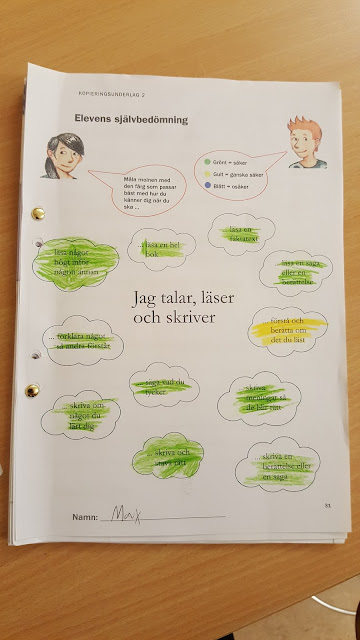 KOPIERINGSUNDERLAG 2
Elevens självbedömning
Måla molnen med
den färg som passar
bäst med hur du
känner dig när du
ska ...
Grönt = säker
Gult = ganska säker
Blått = osäker
läsa något
högt inför
någon annan
... läsa en hel
bok
... läsa en
faktatext
... läsa en saga
eller en
berättelse
Jag talar, läser
och skriver
... förklara något
så andra förstår
... förstå och
berätta om
det du läst
... säga vad du
tycker
... skriva
meningar så
de blir rätt
... skriva om
något du
lärt dig
... skriva och
stava rätt
... skriva en
berättelse eller
en saga
Namn:
31